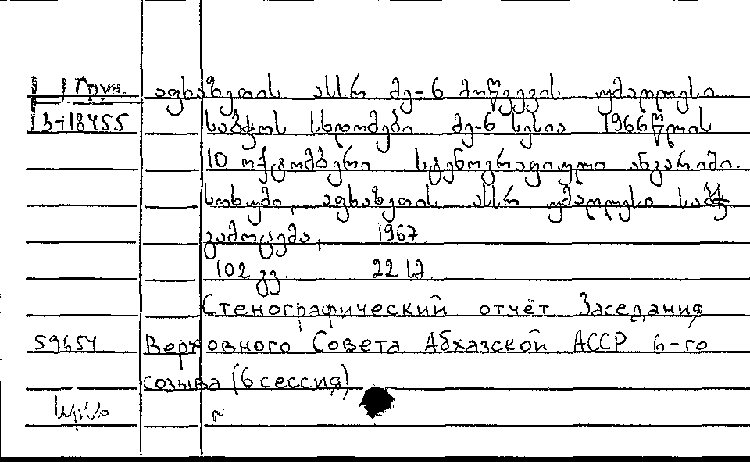 Груз. აფხაზეთის ასსრ მე-6 მოწვევის უმაღლესი
3-18455 საბჭოს სხდომები მე-6 სესია 1966 წლის
10 ოქტომბერი სტენოგრაფიული ანგარიში.
სოხუმი, აფხაზეთის ასსრ უმაღლესი საბჭ.
გამოცემა, 1967.
102 გვ. 22
Стенографический отчёт Заседания
59654 Верховного Совета Абхазской АССР 6-го
созыва (6 сессия)